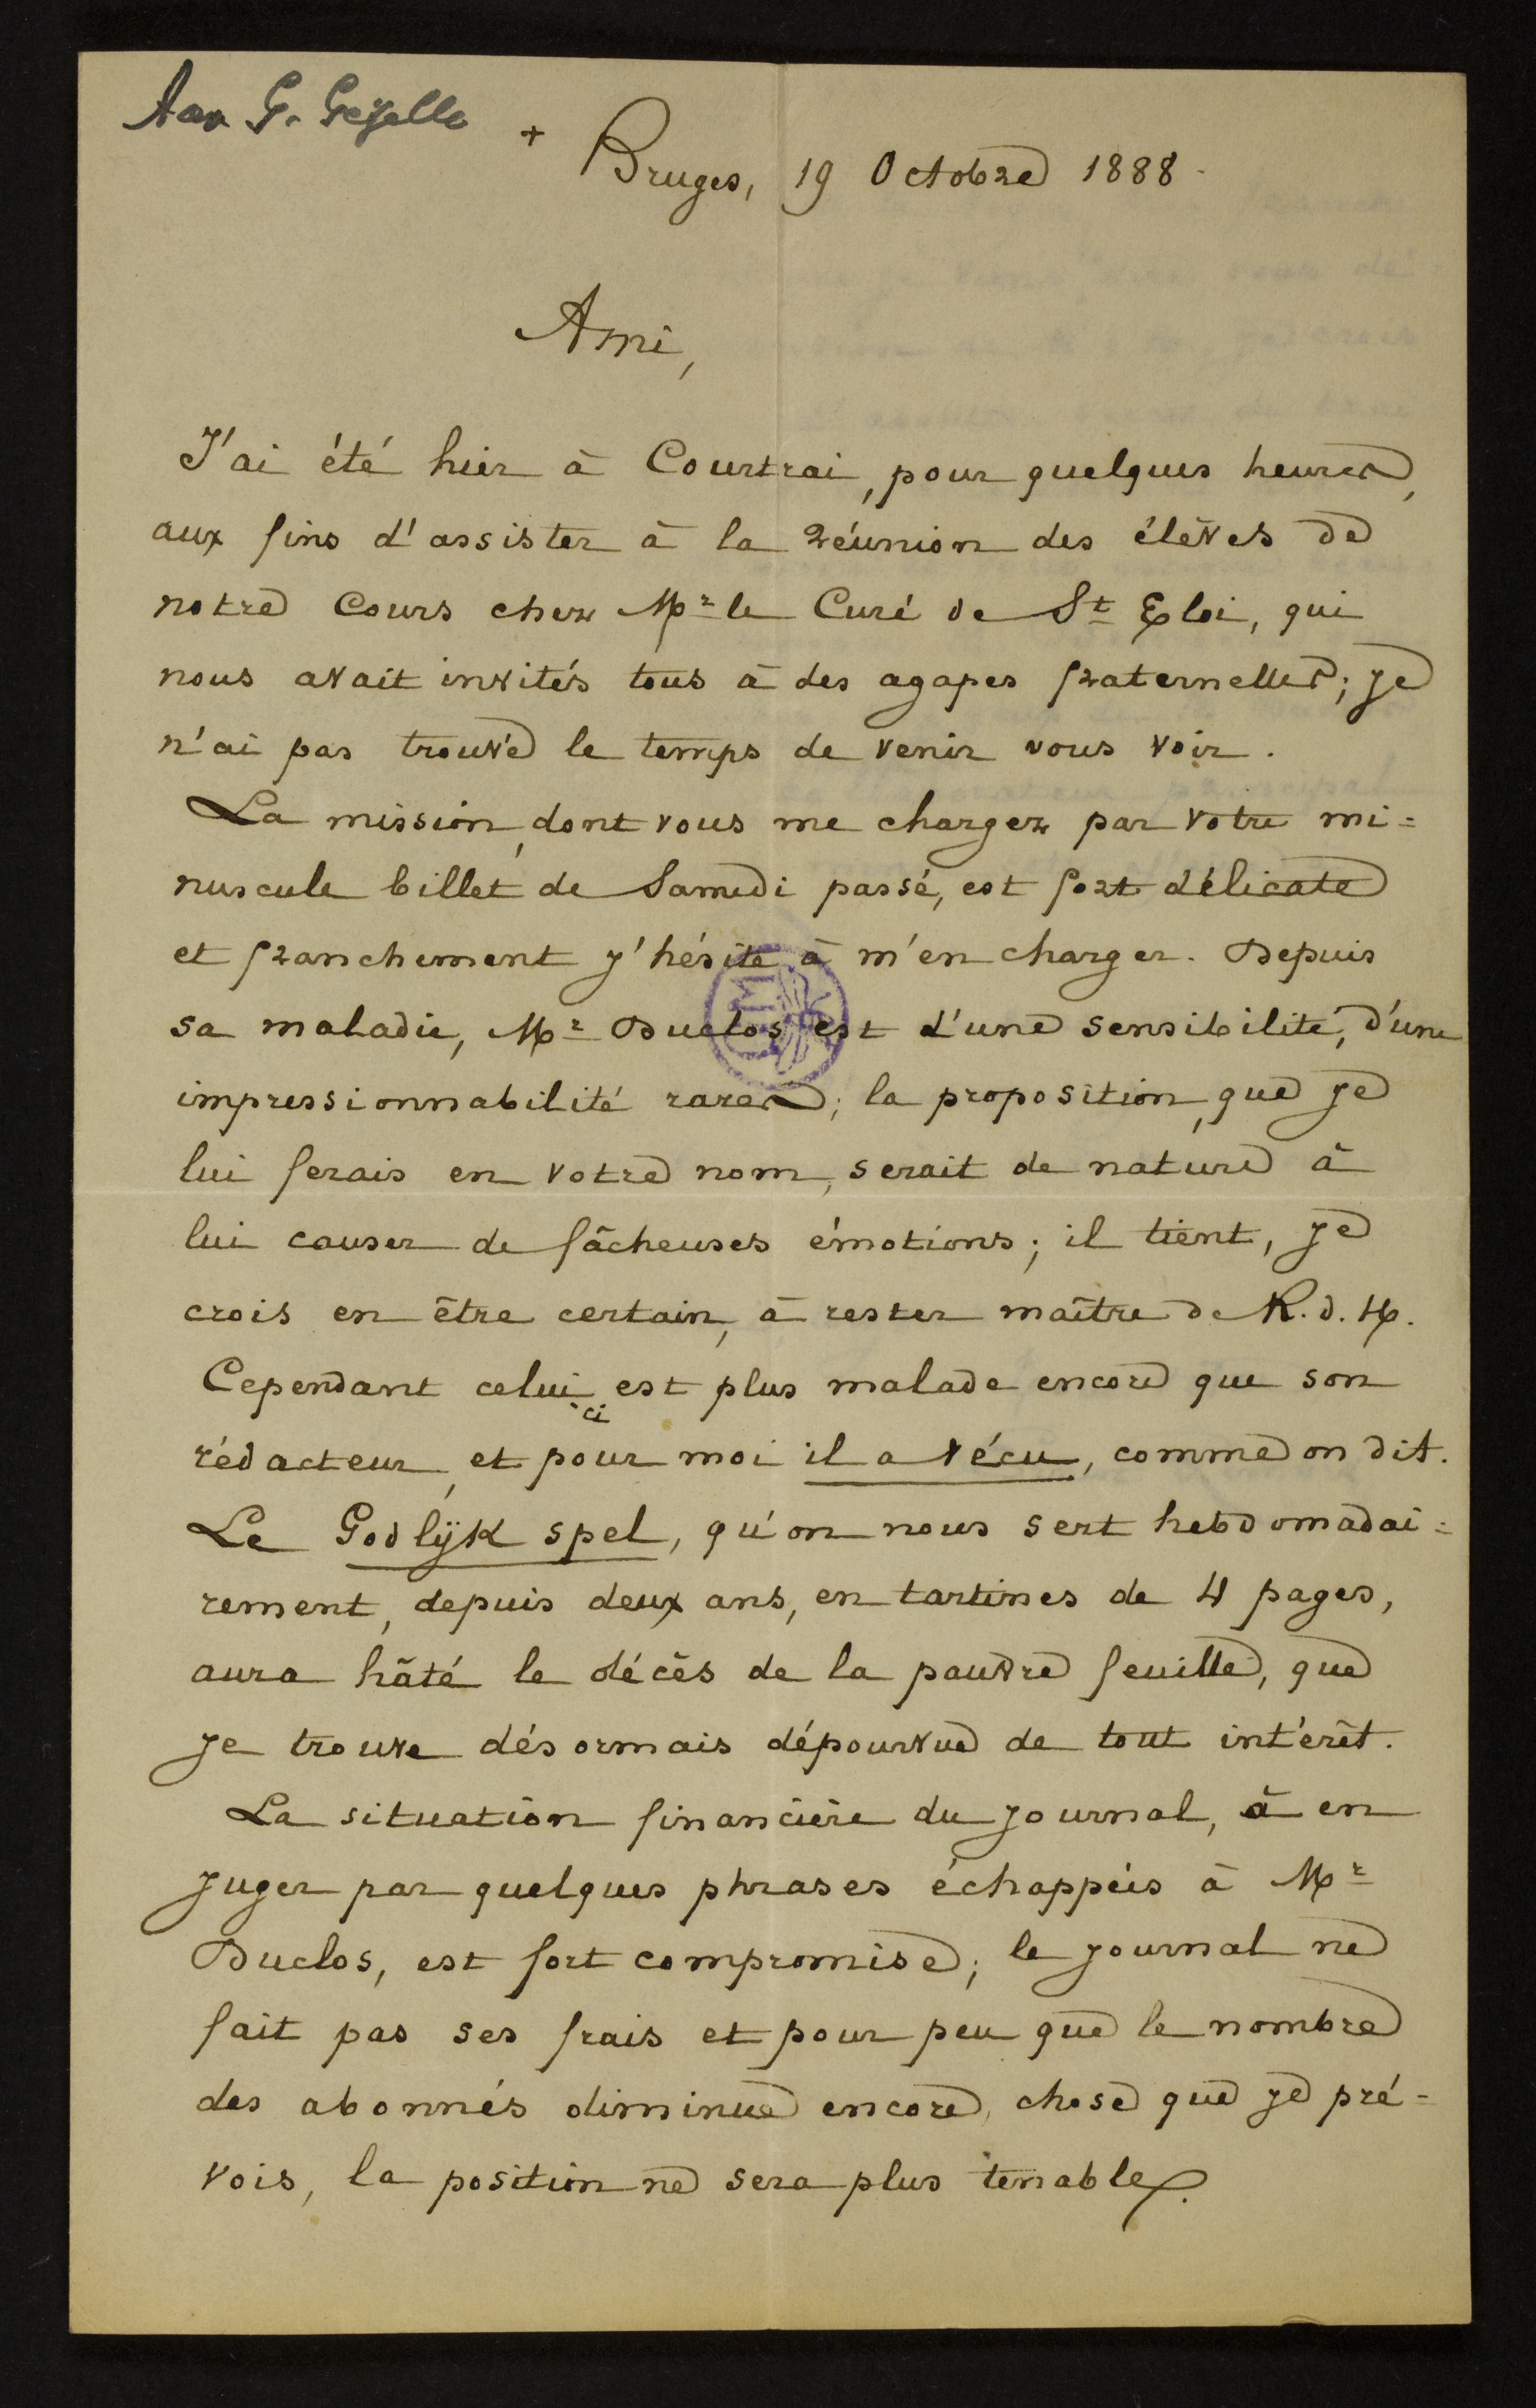 Aan G. Gezelle
+
Bruges, 19 Octobre 1888.
Ami,
J'ai été hier à Courtrai, pour quelques heures,
aux fins d'assister à la réunion des élèves de
notre Cours chez Mr le Curé de St Eloi, qui
nous avait invités tous à des agapes fraternelles; je
n'ai pas trouvé le temps de venir vous voir.
La mission, dont vous me chargez par votre mi=
nuscule billet de Samedi passé, est fort délicate
et franchement j'hésite à m'en charger. Depuis
sa maladie, Mr Duclos est d'une sensibilité, d'une
impressionnabilité rares; la proposition, que je
lui ferais en votre nom, serait de nature à
lui causer de fâcheuses émotions; il tient, je
crois en être certain, à rester maître de R. d. H.
Cependant celui-ci est plus malade encore que son
rédacteur, et pour moi il a vécu, comme on dit.
Le Godlijk spel, qu'on nous sert hebdomadai=
rement, depuis deux ans, en tartines de 4 pages,
aura hâté le décès de la pauvre feuille, que
je trouve désormais dépourvue de tout intérêt.
La situation financière du journal, à en
juger par quelques phrases échappées à Mr
Duclos, est fort compromise; le journal ne
fait pas ses frais et pour peu que le nombre
des abonnés diminue encore, chose que je pré=
vois, la position ne sera plus tenable.